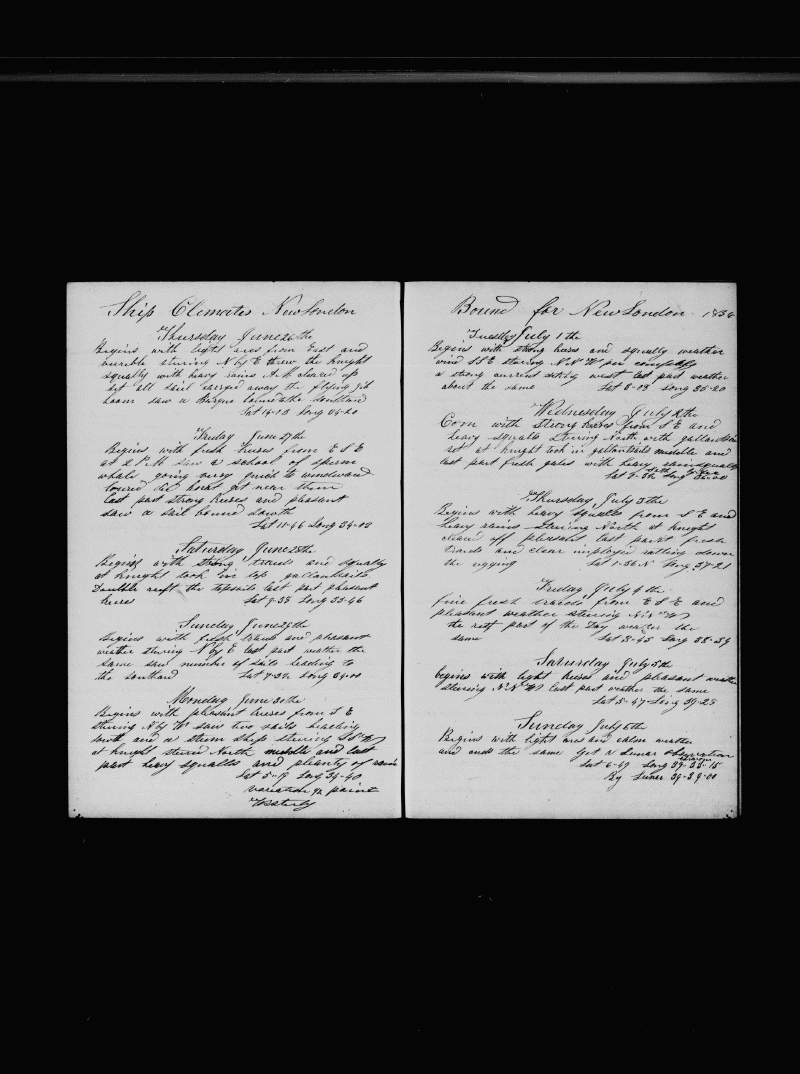 Ship Clematis New London
Thursday June 26 the
Begins with light ares from East and
variable stering N by E threw the knight
squally with heavy rains A.M cleared up
set all sail carried away the flying jib
boom saw a Barque bound to the southard
Lat 14-13 Long 34-20
Friday June 27 the
Begins with fresh breses from E S E
at 2 P.M saw a school of sperm
whale going very quick to windward
lowerd did not get near them
last part strong breses and pleasant
saw a sail bound south
Lat 11-46 Long 34-03
Saturday June 28 the
Begins with strong trands and squally
at knight took in top gallantsails
Doubble reeft the topsails last part pleasant
breses Lat 9-38 Long 33-46
Sunday June 29 the
Begins with fresh trands and pleasant
weather stering N by E last part weather the
same saw number of sails heading to
the southard Lat 7-32 Long 34-00
Monday June 30 the
Begins with pleasant breses from S E
stering N by W saw two sails heading
south and a steem ship stering S S W
at knight sterd North middle and last
part heavy squalls and pleanty of rain
Lat 5-19 Long 34-40
variation 1/2 point
Westerly
Bound for New London 1856
Tuesday July 1 the
Begins with strong breses and squally weather
wind S S E stering N N W per compass
a strong current seting west last part weather
about the same Lat 3-03 Long 35-20
Wednesday July 2 the
Com with strong breses from S E and
heavy squals stering North with gallantsails
set at knight took in gallantsails middle and
last part fresh gales with heavy rain squalls
Thursday July 3 the
Begins with heavy squalls from S E and
heavy rains stering North at knight
cleard off pleasant last part fresh
trands and clear imployed ratling down
the rigging Lat 1-36 N Long 37-21
Friday July 4 the
fine fresh trands from E S E and
pleasant weather stering N N W
the rest part of the Day weather the
same Lat 3-45 Long 38-59
Saturday July 5 the
begins with light breses and pleasant weather
stering N N W last part weather the same
Lat 5-47 Long 39-23
Sunday July 6 the
Begins with light ares and calm weather
and ends the same got a Lunar observation
Lat 6-49 Long 39-35-15
By Lunar 39-39-00